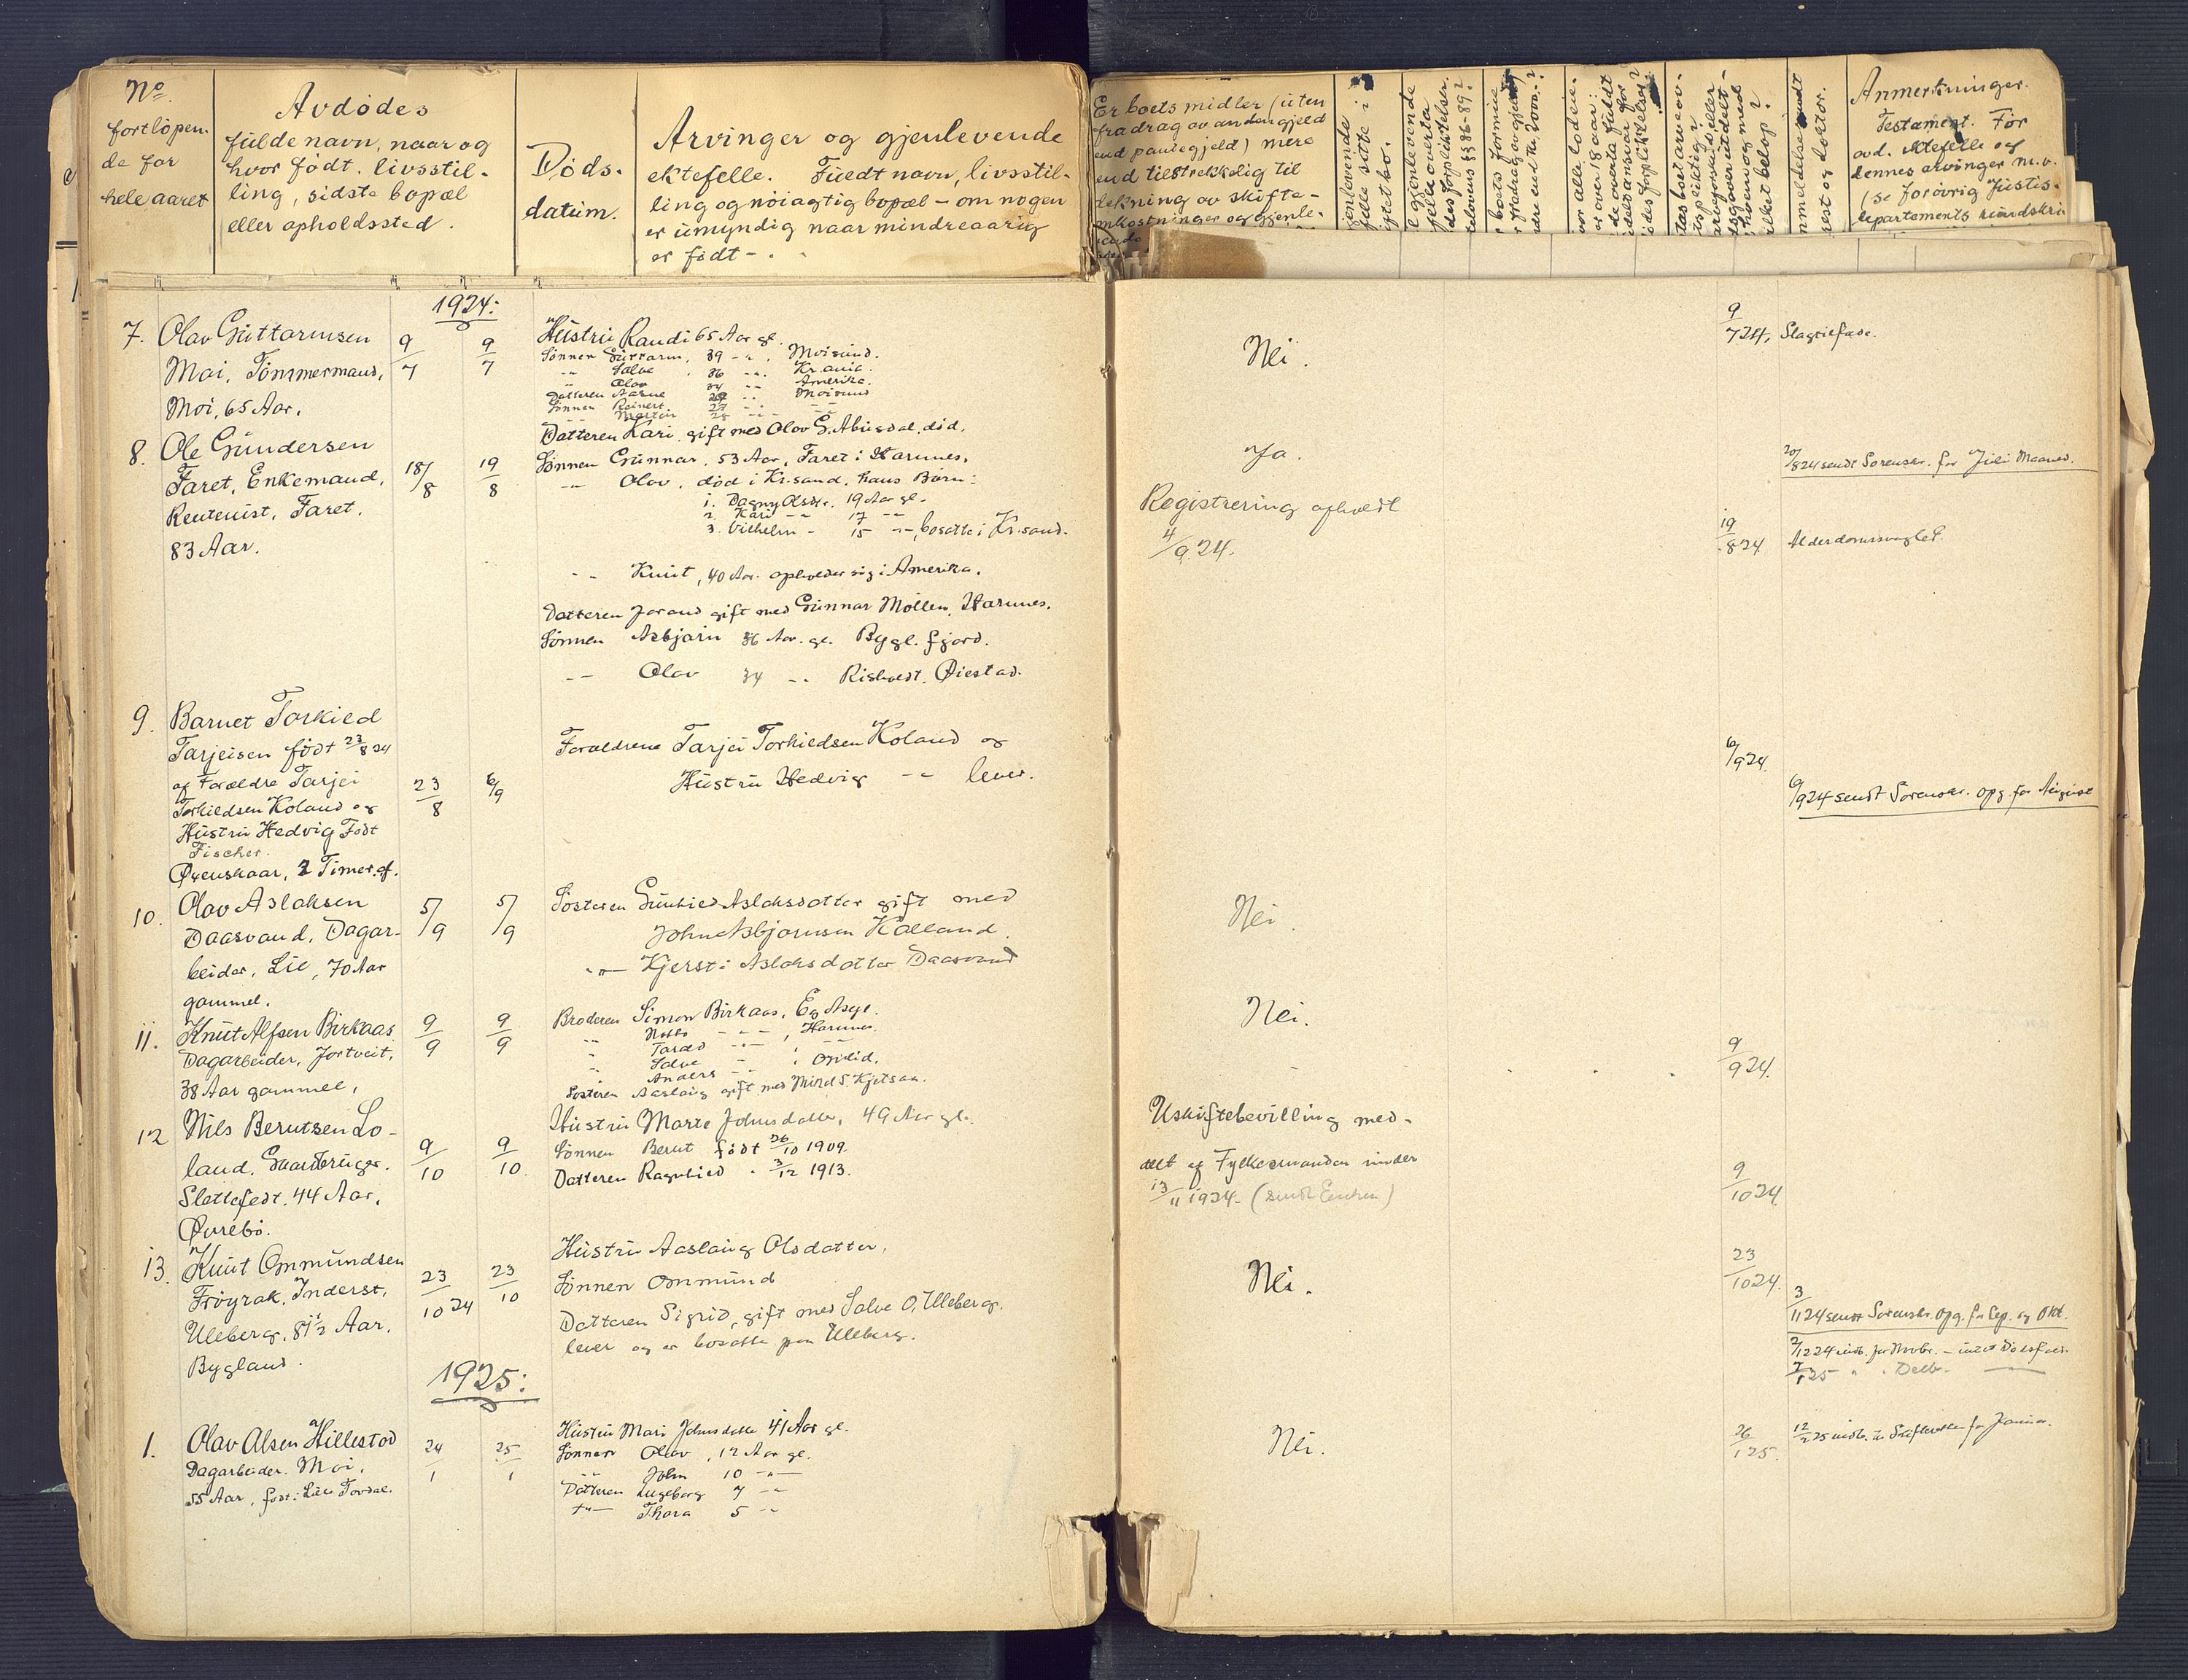 No.
fortløpen-
de for
hele aaret
Avdødes
fulde navn, naar og
hvor født, livsstil-
ling, sidste bopæl
eller opholdssted.
Døds-
datum.
Arvinger og gjenlevende
ektefelle. Fuldt navn, livsstil-
ling og nöiagtig bopæl - om nogen
er umyndig naar mindreaarig
er født -.
Er boets midler (uten
fradrag av anden gjeld
end pantegjeld) mere
end tilstrekkelig til
dekning av skifte-
omkostninger og gjenle-
Anmerkninger.
Testament. For
avd. ektefelle og
dennes arvinger m.v.
(se forøvrig Justis-
departements rundskri
1924:
7. Olav Guttormsen
Moi, Tømmermand,
Moi, 65 Aar.
9/7
9/7
Hustru Randi 65 Aar gl.
Sønnen Guttorm, 39 - " . Moisund.
" Salve 36 " Kr.ania.
" Olav 34 " Amerika.
Datteren Aasne " Moisund
Sønnen Reinert 27 "
Martin
Datteren Kari, gift med Olav G. Abusdal, død.
Nei.
9/7 24, Slagtilfæde.
8. Ole Gundersen
Faret, Enkemand,
Rentenist, Faret.
83 Aar.
18/8
19/8
Sønnen Gunnar, 53 Aar, Faret i Hornnes.
" Olav, død i Kr.sand, hans Børn:
1. Dagny Olsdtr. 19 Aar gl.
2. Kari " 17 "
3. Vilhelm - 15 ", bosatte i Kr.sand.
" Knut, 40 Aar. opholder sig i Amerika.
Datteren Jorand gift med Gunnar Mollen, Hornnes.
Sønnen Asbjørn 36 Aar. gl. Bygl.fjord.
" Olav 34 " Risholdt. Øiestad.
Ja.
Registrering afholdt
4/9 24.
20/8 24 sendt Sorenskr. for Juli Maaned.
19/8 24 Alderdomssvaghed.
9. Barnet Torkild
Tarjeisen født 23/8 24
af Forældre Tarjei
Torkildsen Koland og
Hustru Hedvig Født
Fischer.
Øvenskaar, 2 Timer gl.
23/8
6/9
Forældrene Tarjei Torkildsen Koland og
Hustru Hedvig " lever.
6/9 24.
6/9 24 sendt Sorenskr. opg. for August
10. Olav Aslaksen
Daasvand, Dagar-
beider, Lie, 70 Aar
gammel.
5/9
5/9
Søsteren Gunhild Aslaksdatter gift med
John Asbjørnsen Kalland.
" Kjersti Aslaksdatter Daasvand
Nei.
11. Knut Alfsen Birkaas
Dagarbeider, Jortveit,
38 Aar gammel,
9/9
9/9
Broderen Simon Birkaas, Eg Asyl.
" " , Hornnes.
" Tarald " , "
" Salve - , Omlid.
" Anders "
Søsteren Aaslaug gift med S. Kjetsaa.
Nei.
9/9 24.
12 Nils Berntsen Lo-
land, Gaardbruger.
Slettefedt. 44 Aar,
Øvrebø.
9/10
9/10.
Hustru Marte Johnsdatter, 49 Aar gl.
Sønnen Bernt født 26/10 1909.
Datteren Ragnhild " 3/12 1913.
Uskiftebevilling med-
delt af Fylkesmanden under
13/11 1924. (sendt Enken)
9/10 24.
13. Knut Ommundsen
Frøyrak, Inderst,
Uleberg, 81 1/2 Aar.
Bygland.
23/10 24
23/10
Hustru Aaslaug Olsdatter,
Sønnen Ommund
Datteren Sigrid, gift med Salve O. Uleberg.
lever og er bosatte paa Uleberg.
Nei.
23/10 24.
3/11 24 sendt Sorenskr. opg. for Sep. og Okt.
2/12 24 indb. for Novbr. - intet Dødsfald.
2/1 25 " . Decbr. —
1925:
1. Olav Olsen Hillestad
Dagarbeider. Moi.
55 Aar, født i Lien Tovdal.
24/1
25/1
Hustru Mari Johnsdatter 41 Aar gl.
Sønnen Olav, 12 Aar gl.
" John 10 "
Datteren Ingeborg 7 "
" Thora 5 "
Nei.
26/1 25.
12/2 25 indb. til Skifteretten for Januar.